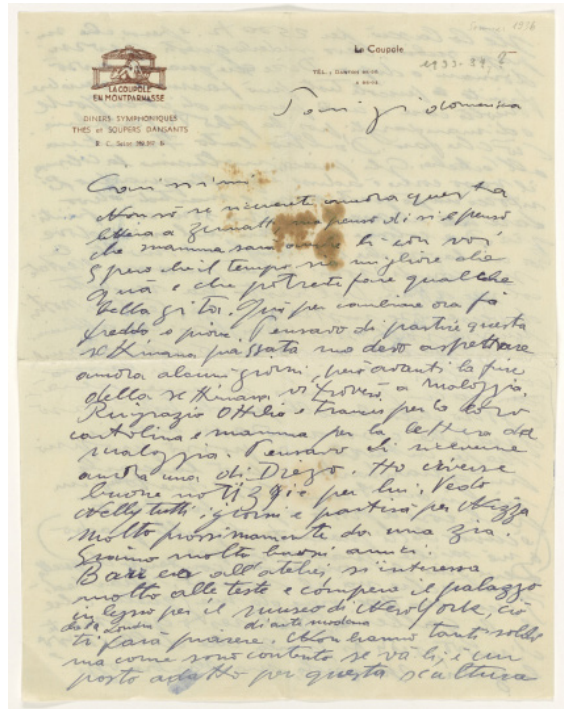 La Coupole
LA COUPOLE
EN MONTPARNASSE
DINERS SYMPHONIQUES
THÉS et SOUPERS DANSANTS
TEL.: DANTON
Carissimi
Non so se riceverete ancora questa
lettera a Zermatt ma penso di si e penso
che mamma sarà anche li con voi
Spero che il tempo sia migliore che
quà e che potrete fare qualche
bella gita. Quì per cambiare ora fà
freddo e piove. Pensavo de partire questa
settimana passata ma devo aspettare
ancora alcuni giorni, però avanti la fine
della settimana vi troverò a Maloggia.
Ringrazio Ottilia e Francis per la loro
cartolina e mamma per la lettera da
Maloggia. Pensavo di riceverne
ancora una di Diego. Ho diverse
buone notizie per lui. Vedo
Nelly tutti i giorni e partirà per Nizza
molto prossimamente da una zia.
Siamo molto buoni amici.
all'atelier, si interessa
molto alle teste e compera il palazzo
in legno per il museo di New York, ciò
d'arte moderna
ti farà piacere. Non hanno tanti soldi
ma come sono contento se và li, è un
posto adatto per questa scultura